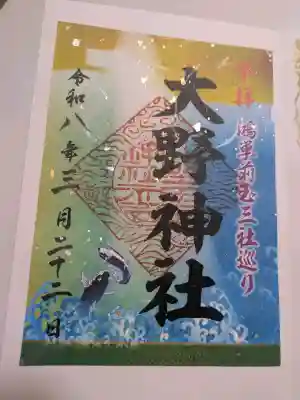 奉拝 三社巡り
大野神社
令和八年三月二十二日